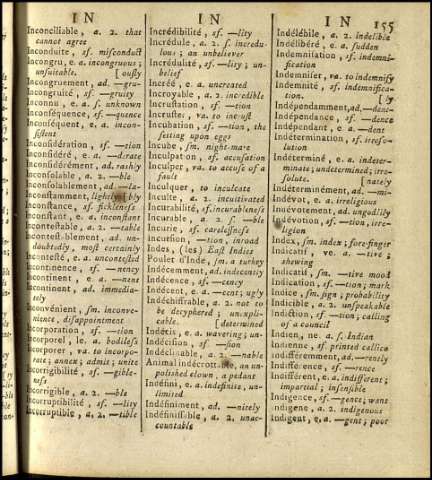 IN
IN
IN
155
Inconciliable, a. 2. that
cannot agree
Inconduite, sf. misconduct
Incongru, e a. incongruous;
unsuitable. [ously
Incongruement, ad. —gru-
Incongruité, sf. —gruity
Inconnu, e a. s. unknown
Inconséquence, sf. —quence
Inconséquent, e a. incon-
sistent
Inconsidération, sf. —tion
Inconsidéré, e a. —derate
Inconsidérément, ad. rashly
Inconsolable, a. 2. —ble
Inconsolablement, ad. —la-
Inconstamment, lightly [bly
Inconstance, sf. fickleness
Inconstant, e a. inconstant
Incontestable, a. 2. —table
Incontestablement, ad. un-
doubtedly, most certainly
Incontesté, e a. uncontested
Incontinence, sf. —nency
Incontinent, e a. —nent
Incontinent, ad. immedia-
tely
Inconvénient, sm. inconve-
nience, disappointment
Incorporation, sf. —tion
Incorporel, le a. bodiless
Incorporer, va. to incorpo-
rate; annex; admit; unite
Incorrigibilité, sf. —gible-
ness
Incorrigible, a. 2. —ble
Incorruptibilité, sf. —lity
Incorruptible, a. 2. —tible
Incrédibilité, sf. —lity
Incrédule, a. 2. s. incredu-
lous; an unbeliever
Incrédulité, sf. —lity; un-
belief
Incréé, e a. uncreated
Incroyable, a. 2. incredible
Incrustation, sf. —tion
Incruster, va. to incrust
Incubation, sf. —tion, the
setting upon eggs
Incube, sm. night-mare
Inculpation, sf. accusation
Inculper, va. to accuse of a
fault
Inculquer, to inculcate
Inculte, a. 2. uncultivated
Incurabilité, sf. incurableness
Incurable, a. 2. s. —ble
Incurie, sf. carelessness
Incursion, —tion, inroad
Indes, (les) East Indies
Poulet d'Inde, sm. a turkey
Indécemment, ad. indecently
Indécence, sf. —cency
Indécent, e a. —cent; ugly
Indéchiffrable, a. 2. not to
be decyphered; unexpli-
cable. [determined
Indécis, e a. wavering; un-
Indécision, sf. —sion
Indéclinable, a. 2. —nable
Animal indécrottable, an un-
polished clown, a pedant
Indéfini, e a. indefinite, un-
limited
Indéfiniment, ad. —nitely
Indéfinissable, a. 2. unac-
countable
Indélébile, a. 2. indelible
Indélibéré, e a. sudden
Indemnisation, sf. indemni-
fication
Indemniser, va. to indemnify
Indemnité, sf. indemnifica-
tion. [ly
Indépendamment, ad. —dent-
Indépendance, sf. —dence
Indépendant, e a. —dent
Indétermination, sf. irreso-
lution
Indéterminé, e a. indeter-
minate; undetermined; irre-
solute. [nately
Indéterminément, ad. indetermi-
Indévot, e a. irreligious
Indévotement, ad. ungodlily
Indévotion, sf. —tion, irre-
ligion
Index, sm. index; fore-finger
Indicatif, ve a. —tive;
shewing
Indicatif, sm. —tive mood
Indication, sf. —tion; mark
Indice, sm. sign; probability
Indicible, a. 2. unspeakable
Indiction, sf. —tion; calling
of a council
Indien, ne, a. s. Indian
Indienne, sf. printed callico
Indifféremment, ad. —rently
Indifférence, sf. —rence
Indifférent, e a. indifferent;
impartial; insensible
Indigence, sf. —gence; want
Indigène, a. 2. indigenous
Indigent, e a. —gent; poor